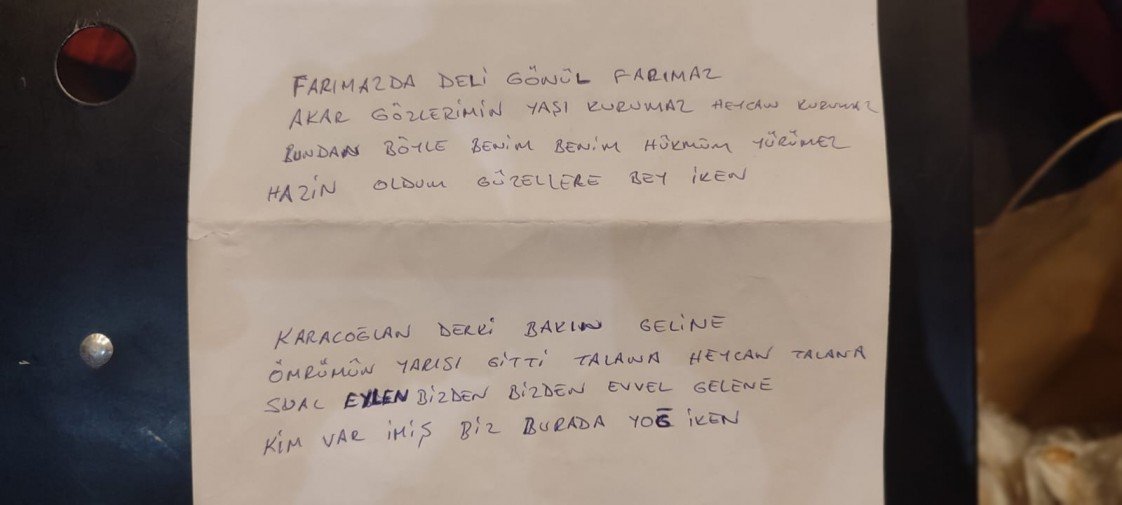 FARIMAZDA DELİ GÖNÜL FARIMAZ
AKAR GÖZLERİMİN YAŞI KURUMAZ HEYCAN KURUMAZ
BUNDAN BÖYLE BENİM BENİM HÜKMÜM YÜRÜMEZ
HAZİN OLDUM GÜZELLERE BEY İKEN
KARACOĞLAN DERKİ BAKIN GELİNE
ÖMRÜMÜN YARISI GİTTİ TALANA HEYCAN TALANA
SUAL EYLEN BİZDEN BİZDEN EVVEL GELENE
KİM VAR İMİŞ BİZ BURADA YOĞ İKEN